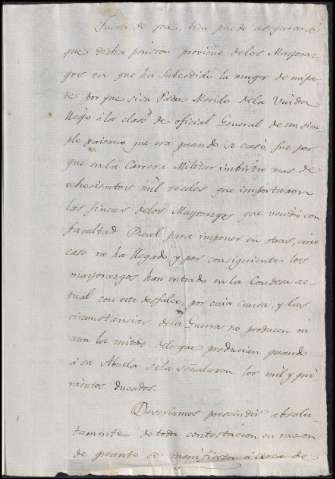 Fuera de que, bien puede asegurarse
que dicha pension proviene de los Mayoraz-
gos en que ha subcedido la mayor de mi par-
te por que si su Padre Morillo de la
llegó à la clase de oficial General de un sim-
ple paisano que era quando se casó fue por
que en la Carrera Militar imbirtio mas de
ochocientos mil reales que importaron
las fincas de los Mayorazgos que vendió con
facultad Real para imponer en otras, cuio
caso no ha llegado y por consiguiente los
mayorazgos han entrado en la Condesa ac-
tual con este desfalco, por cuia causa y las
circunstancias de la Guerra no producen ni
aun la mitad de lo que producian quando
à su Abuela se la señalaron los mil y qui-
nientos ducados.
Deveriamos prescindir absolu-
tamente de toda contestacion en razon
de quanto se manifiesta à cerca de